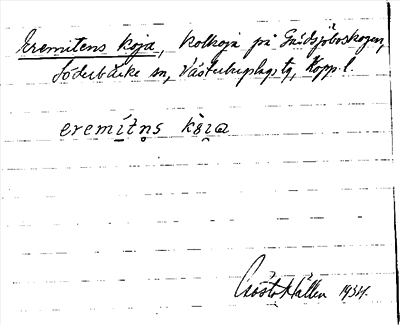 Eremitens koja, kolkoja på Gnidsjöboskogen,
Söderbärke sn, Västerbergslags tg, Kopp. l.
eremi̱tn̥s kòi̯a
Hällen 1934.